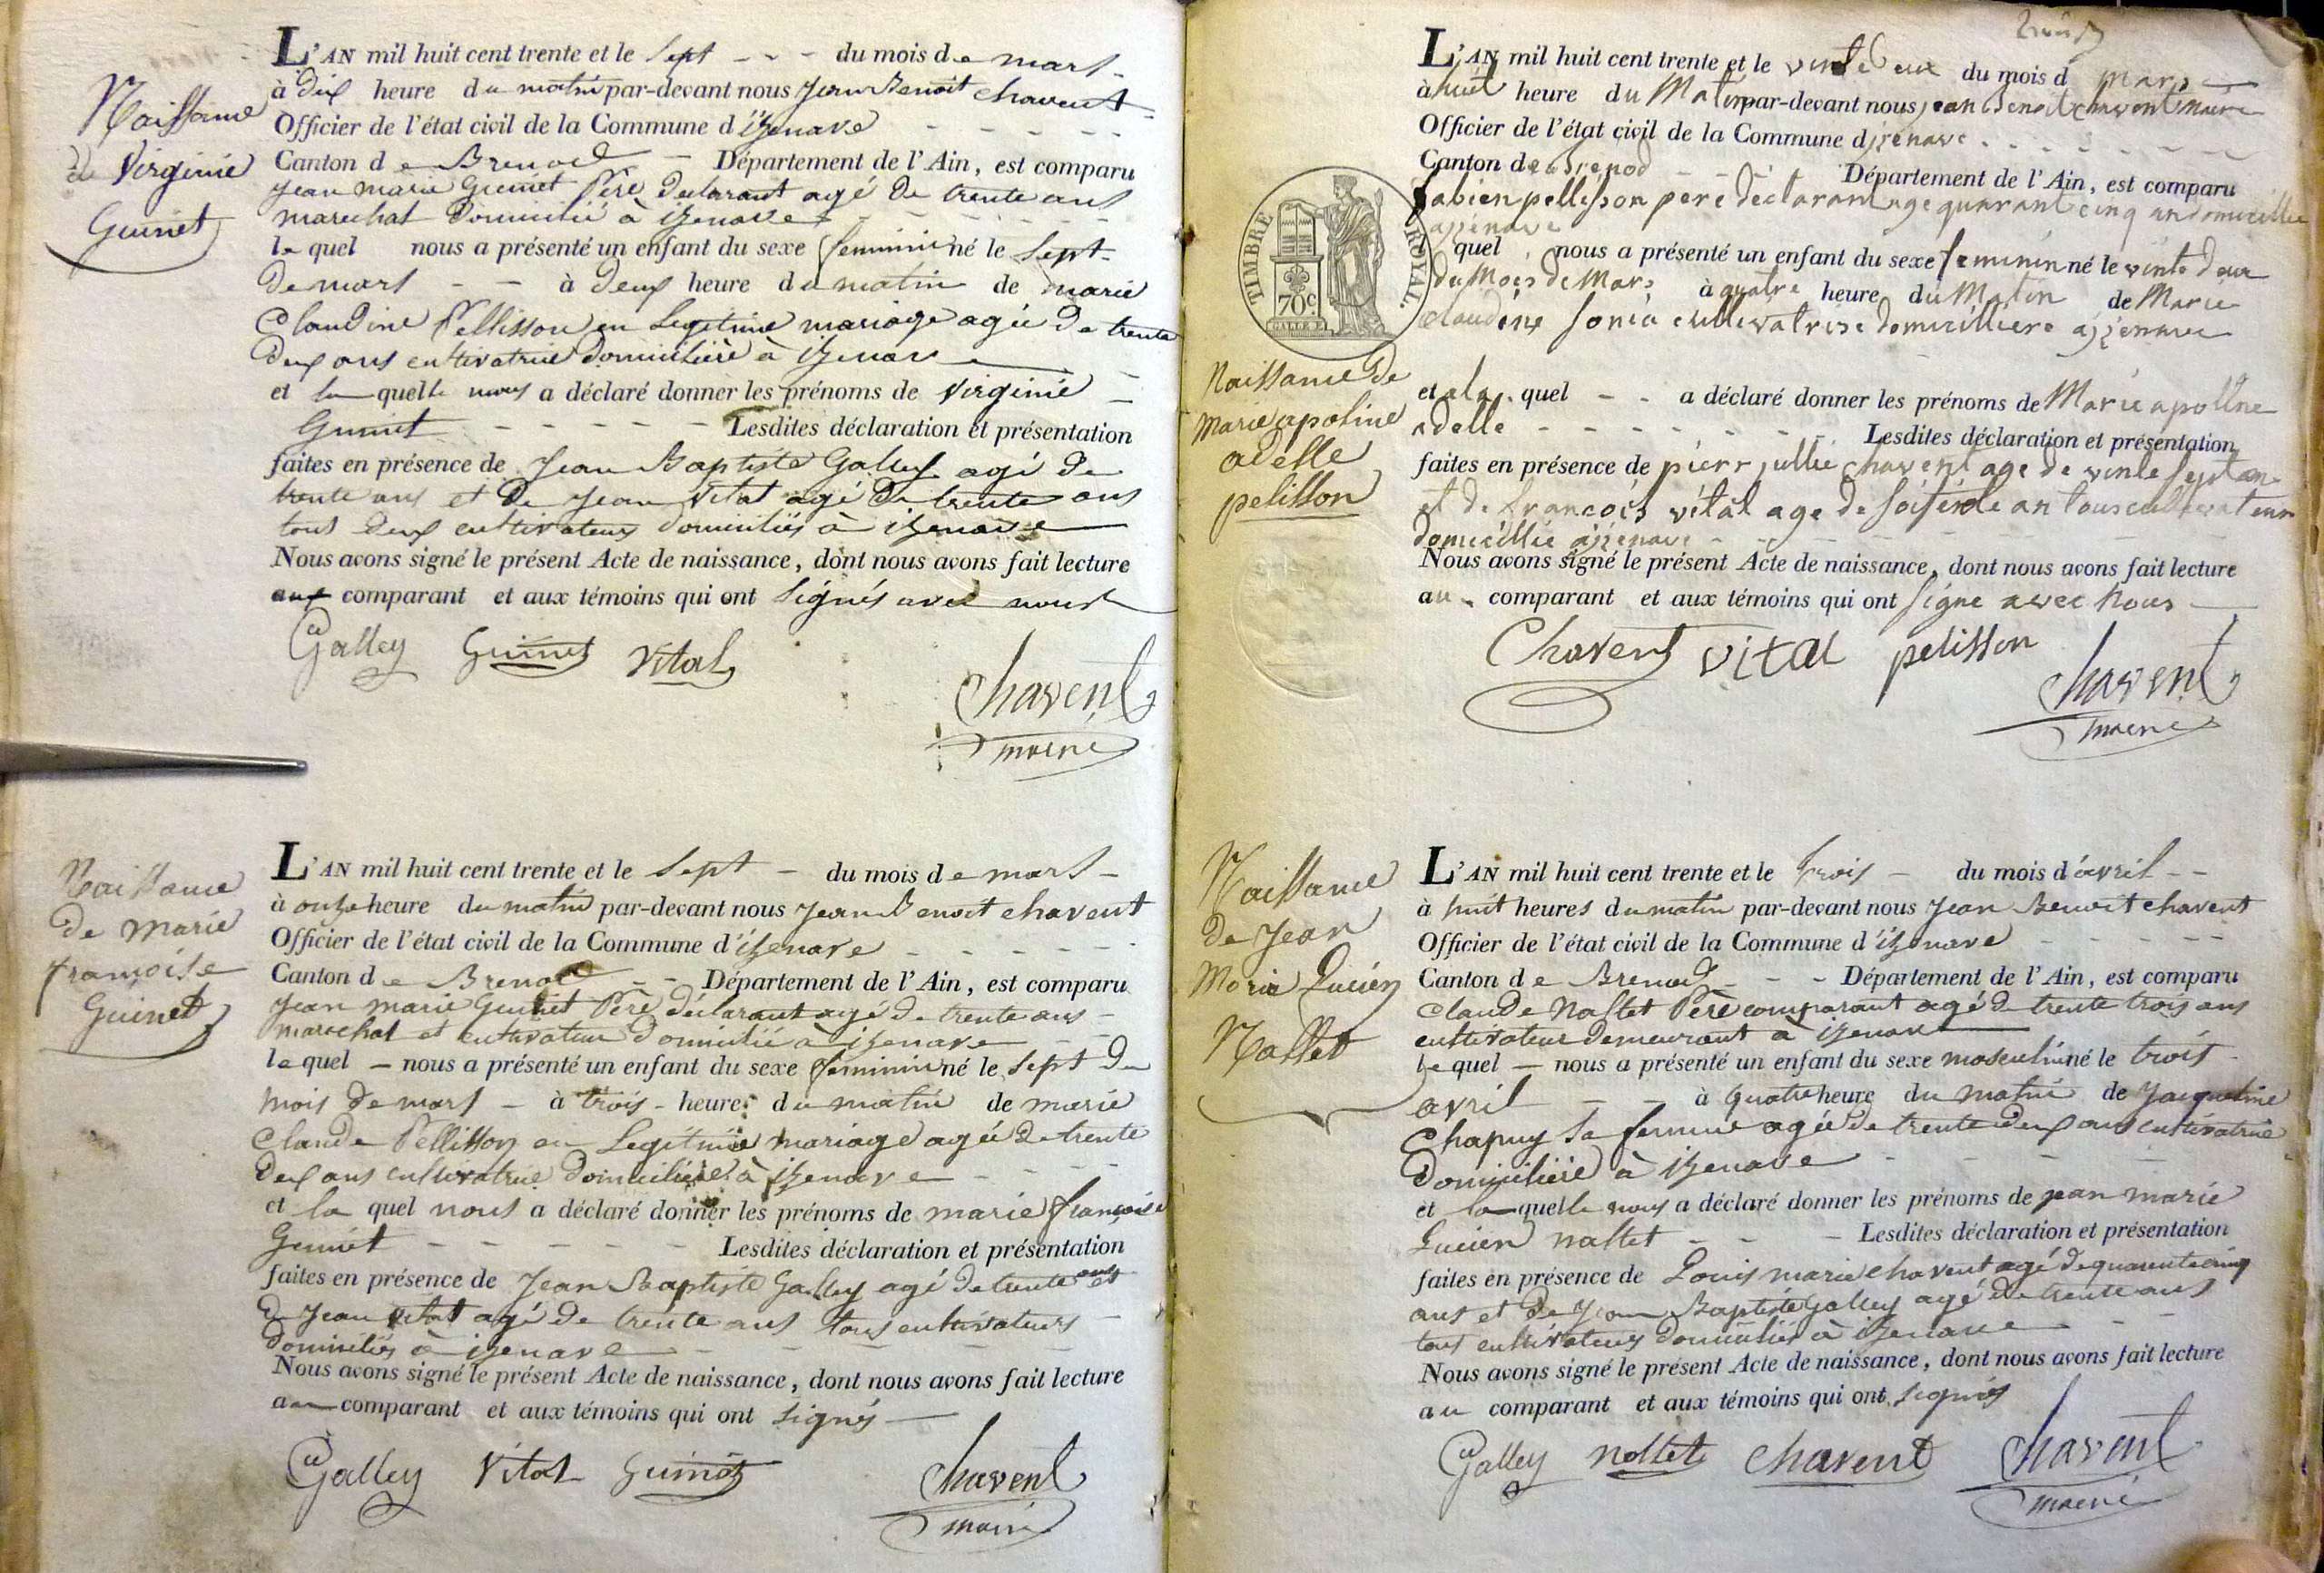 Naissance
de Virginie
Guinet
L'AN mil huit cent trente et le sept - - - du mois de mars -
à dix heure du matin par-devant nous Jean Benoit Chavent
Officier de l'état civil de la Commune d'izenave - - - - -
Canton de Brenod - Département de l'Ain, est comparu
Jean marie Guinet Père déclarant agé de trente ans
marechal domicilié à izenave - - - - -
le quel nous a présenté un enfant du sexe feminin né le sept
de mars - - à deux heure du matin de marie
Claudine Pellisson en Legitime mariage agée de trente
deux ans cultivatrice domiciliée à izenave
et la quelle nous a déclaré donner les prénoms de Virginie -
Guinet - - - - - Lesdites déclaration et présentation
faites en présence de Jean Baptiste Galley agé de
trente ans et de Jean Vital agé de trente ans
tous deux cultivateurs domiciliés à izenave
Nous avons signé le présent Acte de naissance, dont nous avons fait lecture
aux comparant et aux témoins qui ont signés avec nous
Galley Guinet Vital
Chavent
maire
Naissance
de marie
françoise
Guinet
L'AN mil huit cent trente et le sept - du mois de mars -
à onze heure du matin par-devant nous Jean Benoit chavent
Officier de l'état civil de la Commune d'izenave - - - - -
Canton de Brenod - - Département de l'Ain, est comparu
Jean marie Guinet Père déclarant agé de trente ans -
marechal et cultivateur domicilié à izenave - -
le quel - nous a présenté un enfant du sexe feminin né le sept du
mois de mars - à trois - heures du matin de marie
Claude Pellisson en Legitime mariage agée de trente
deux ans cultivatrice domiciliée à izenave - - - -
et la quel nous a déclaré donner les prénoms de marie françoise
Guinet - - - - - Lesdites déclaration et présentation
faites en présence de Jean Baptiste Galley agé de trente ans et
de Jean Vital agé de trente ans tous cultivateurs -
domiciliés à izenave - - - - -
Nous avons signé le présent Acte de naissance, dont nous avons fait lecture
au comparant et aux témoins qui ont signés
Galley Vital Guinet
Chavent
maire
L'AN mil huit cent trente et le vinte deux du mois d mars
à huit heure du Matin par-devant nous jean benoit chavent maire
Officier de l'état civil de la Commune d izenave - - - - -
Canton de brenod - - Département de l'Ain, est comparu
fabien pellisson pere declarant age quarant cinq an domicillie
a izenave
quel nous a présenté un enfant du sexe feminin né le vinte deux
du Mois de Mars à quatre heure du Matin de Marie
claudine sonia cultivatrise domicilliere a izenave
TIMBRE ROYAL.
70c
Naissance de
marie apoline
adelle
pelisson
et a la quel - - a déclaré donner les prénoms de Marie apoline
adelle - - - - - - Lesdites déclaration et présentation
faites en présence de pierr jullie chavent age de vinte sept an
et de francois vital age de soisente an tous cultivateur
domicillie a izenave - - - - -
Nous avons signé le présent Acte de naissance, dont nous avons fait lecture
au comparant et aux témoins qui ont signe avec nous
Chavent vital pelisson
Chavent
maire
Naissance
de Jean
Marie Lucien
Nallet
L'AN mil huit cent trente et le trois - du mois d'avril - -
à huit heures du matin par-devant nous Jean Benoit chavent
Officier de l'état civil de la Commune d'izenave - - - - -
Canton de Brenod - - - Département de l'Ain, est comparu
Claude Nallet Père comparant agé de trente trois ans
cultivateur demeurant à izenave
le quel - nous a présenté un enfant du sexe masculin né le trois -
avril - - à quatre heure du matin de Jacqueline
Chapuy sa femme agée de trente deux ans cultivatrice
domiciliée à izenave - - - -
et la quelle nous a déclaré donner les prénoms de jean marie
Lucien nallet - - - Lesdites déclaration et présentation
faites en présence de Louis marie chavent agé de quarente cinq
ans et de Jean Baptiste Galley agé de trente ans
tous cultivateurs domiciliés à izenave - -
Nous avons signé le présent Acte de naissance, dont nous avons fait lecture
au comparant et aux témoins qui ont signés
Galley Nallet Chavent Chavent
maire